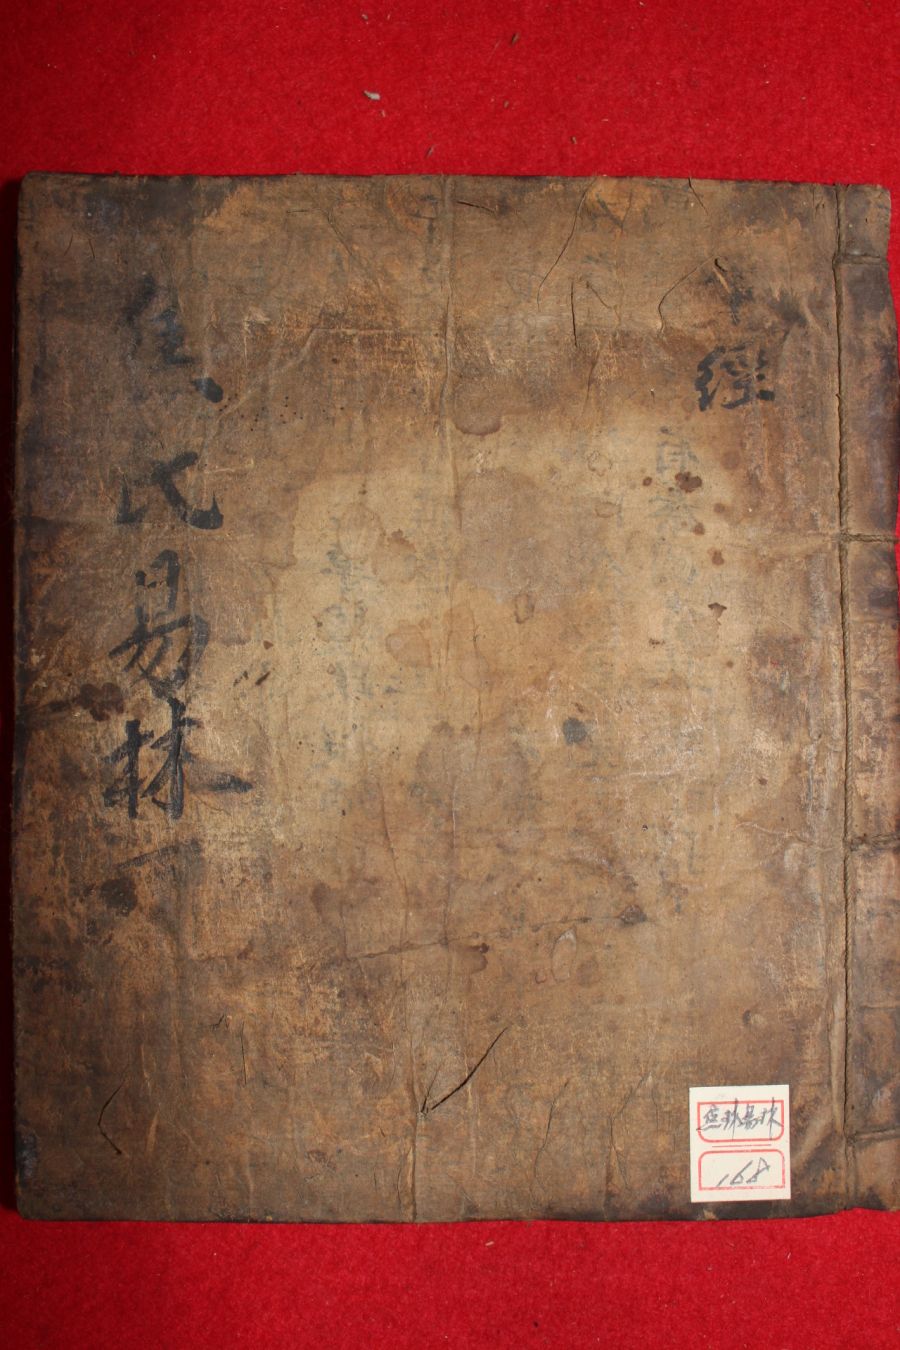 經
焦氏易林一
焦林易林
168